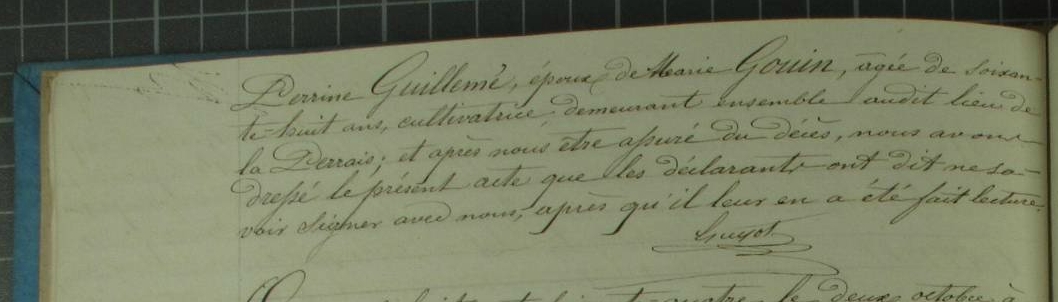 Perrine Guillemé, époux de Marie Gouin, agée de soixan-
te-huit ans, cultivatrice demeurant ensemble audit lieu de
la Perrais; et après nous être assuré du décès, nous avons
dressé le présent acte que les déclarants ont dit ne sa-
voir signer avec nous, après qu'il leur en a été fait lecture.
Guyot
quatre, le deux octobre à